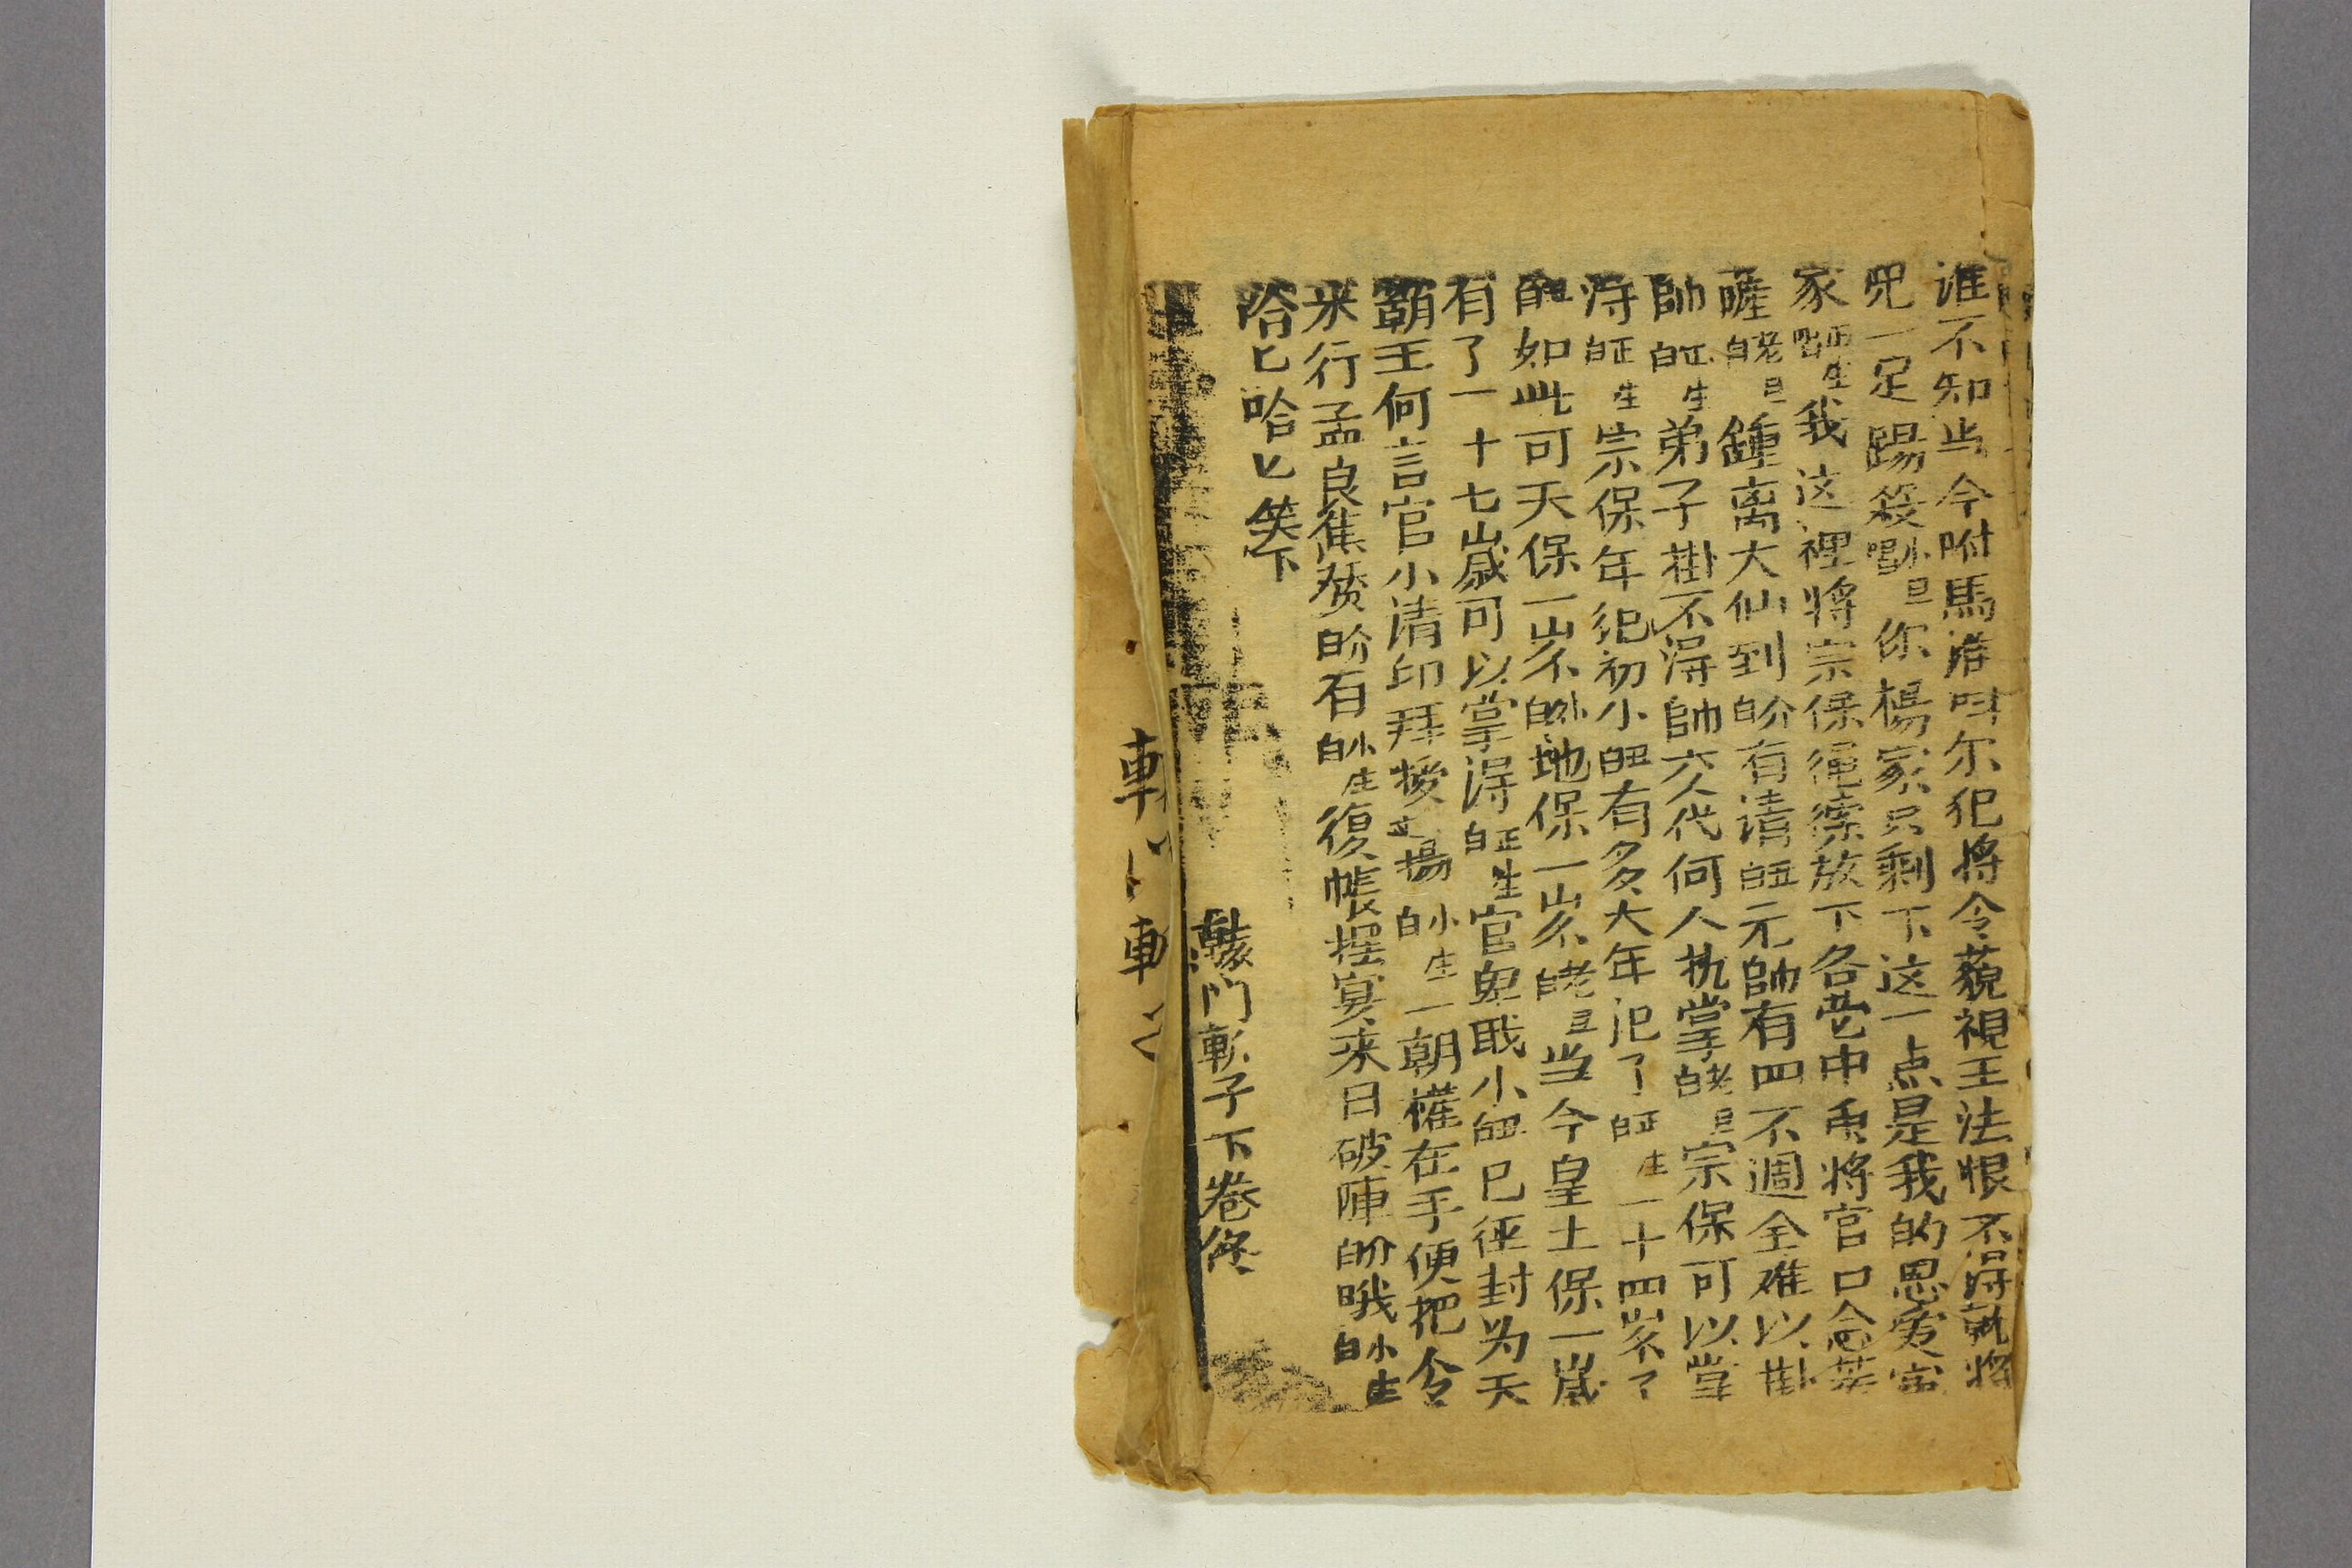 谁不知当今咐馬港叫尔犯将令藐視王法恨不得就将
児一足踢殺小旦唱你楊家只剩下这一点是我的恩爱宗
家正生唱我这裡将宗保繩索放下各营中兵将官口念菩
薩老旦白鍾离大仙到介白有请正白元帥有四不週全难以掛
帥正生白弟子掛不得帥交代何人执掌老旦白宗保可以掌
得正生白宗保年犯初小白有多大年犯了正生白一十四岁了
如此可天保一岁不外白地保一岁老旦白当今皇土保一歲
有了一十七歲可以掌得正生白官卑戝小白已徑封为天
霸王何言官小请印拜授立場小生白一朝權在手便把令
来行孟良焦赞介白有小生白復帳摆宴来日破陣介白哦小生白
哈匕哈匕笑下
轅門斬子下卷終